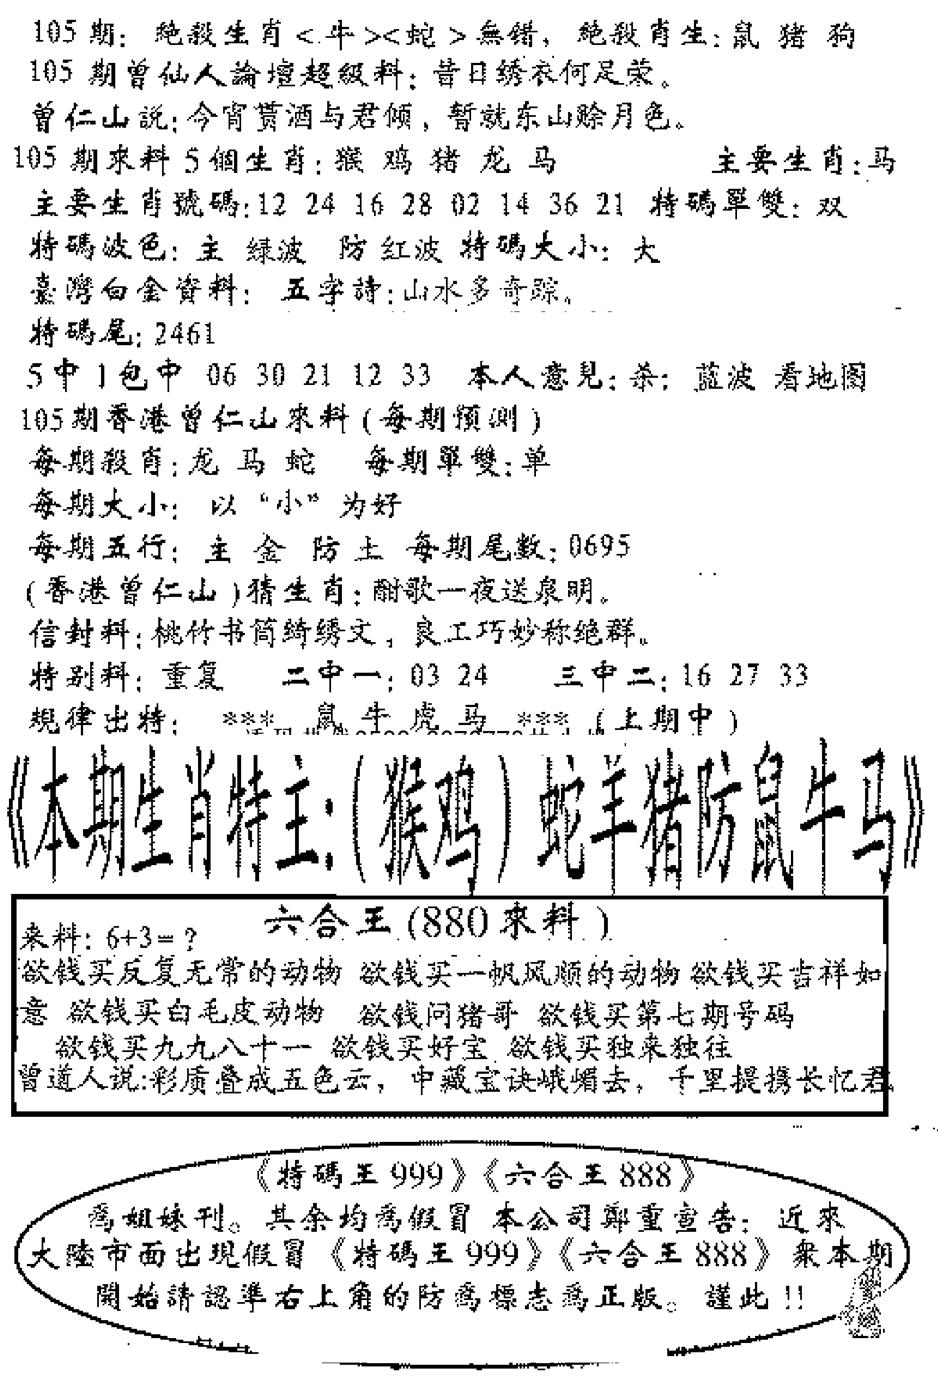 105期：絶殺生肖<牛><蛇>無錯，絶殺肖生：鼠 猪 狗
105期曾仙人論壇超級料：昔日绣衣何足荣。
曾仁山説：今宵贳酒与君倾，暫就东山赊月色。
105期來料5個生肖：猴 鸡 猪 龙 马 主要生肖：马
主要生肖號碼：12 24 16 28 02 14 36 21 特碼單雙：双
特碼波色：主 绿波 防 红波 特碼大小：大
臺灣白金資料： 五字詩：山水多奇踪。
特碼尾：2461
5中1包中 06 30 21 12 33 本人意見：恭：蓝波 看地图
105期香港曾仁山來料(每期預測)
每期殺肖：龙 马 蛇 每期單雙：单
每期大小： 以“小”为好
每期五行： 主 金 防 土 每期尾数：0695
(香港曾仁山)猜生肖：酣歌一夜送泉明。
信封料：桃竹书筒绮绣文，良工巧妙称绝群。
特别料：重复 二中一：03 24 三中二：16 27 33
規律出特： *** 鼠 牛 虎 马 *** (上期中)
《本期生肖特主：(猴鸡)蛇羊猪防鼠牛马》
六合王(880來料)
来料：6+3=？
欲钱买反复无常的动物 欲钱买一帆风顺的动物 欲钱买吉祥如
意 欲钱买白毛皮动物 欲钱问猪哥 欲钱买第七期号码
欲钱买九九八十一 欲钱买好宝 欲钱买独来独往
曾道人说：彩质叠成五色云，中藏宝诀峨嵋去，千里提携长忆君
《特碼王999》《六合王888》
為姐妹刊。其余均為假冒 本公司鄭重宣告：近來
大陸市面出現假冒《特碼王999》《六合王888》衆本期
開始請認準右上角的防為標志為正版。謹此!!